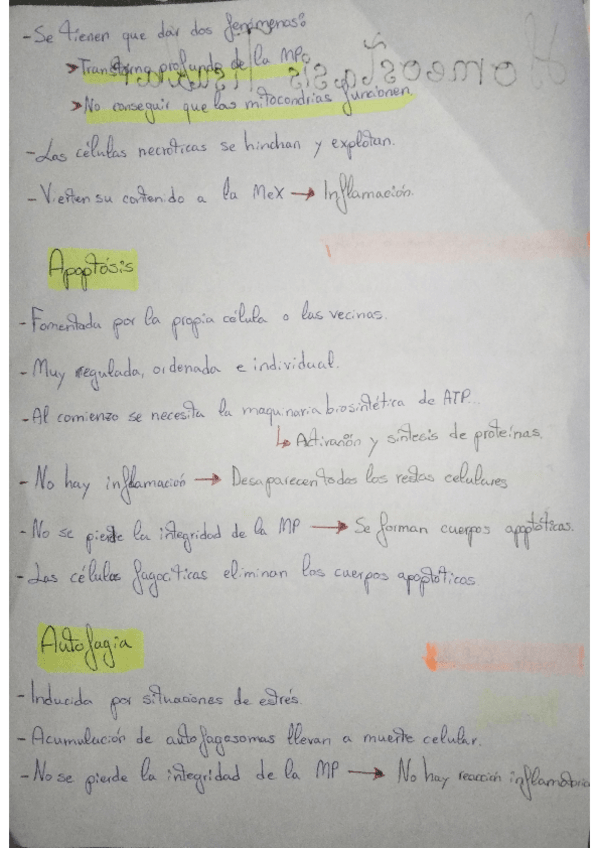 - Se tienen que dar dos fenómenos:
➤ Transforma profunda de la MP.
➤ No conseguir que las mitocondrias funcionen.
- Las células necróticas se hinchan y explotan.
- Vierten su contenido a la MeX → Inflamación.
Apoptósis
- Fomentada por la propia célula o las vecinas.
- Muy regulada, ordenada e individual.
- Al comienzo se necesita la maquinaria biosintética de ATP...
↳ Activación y síntesis de proteínas.
- No hay inflamación → Desaparecen todos los restos celulares
- No se pierde la integridad de la MP → Se forman cuerpos apoptóticos.
- Las células fagocíticas eliminan los cuerpos apoptóticos
Autofagia
- Inducida por situaciones de estrés.
- Acumulación de autofagosomas llevan a muerte celular.
- No se pierde la integridad de la MP → No hay reacción inflamatoria